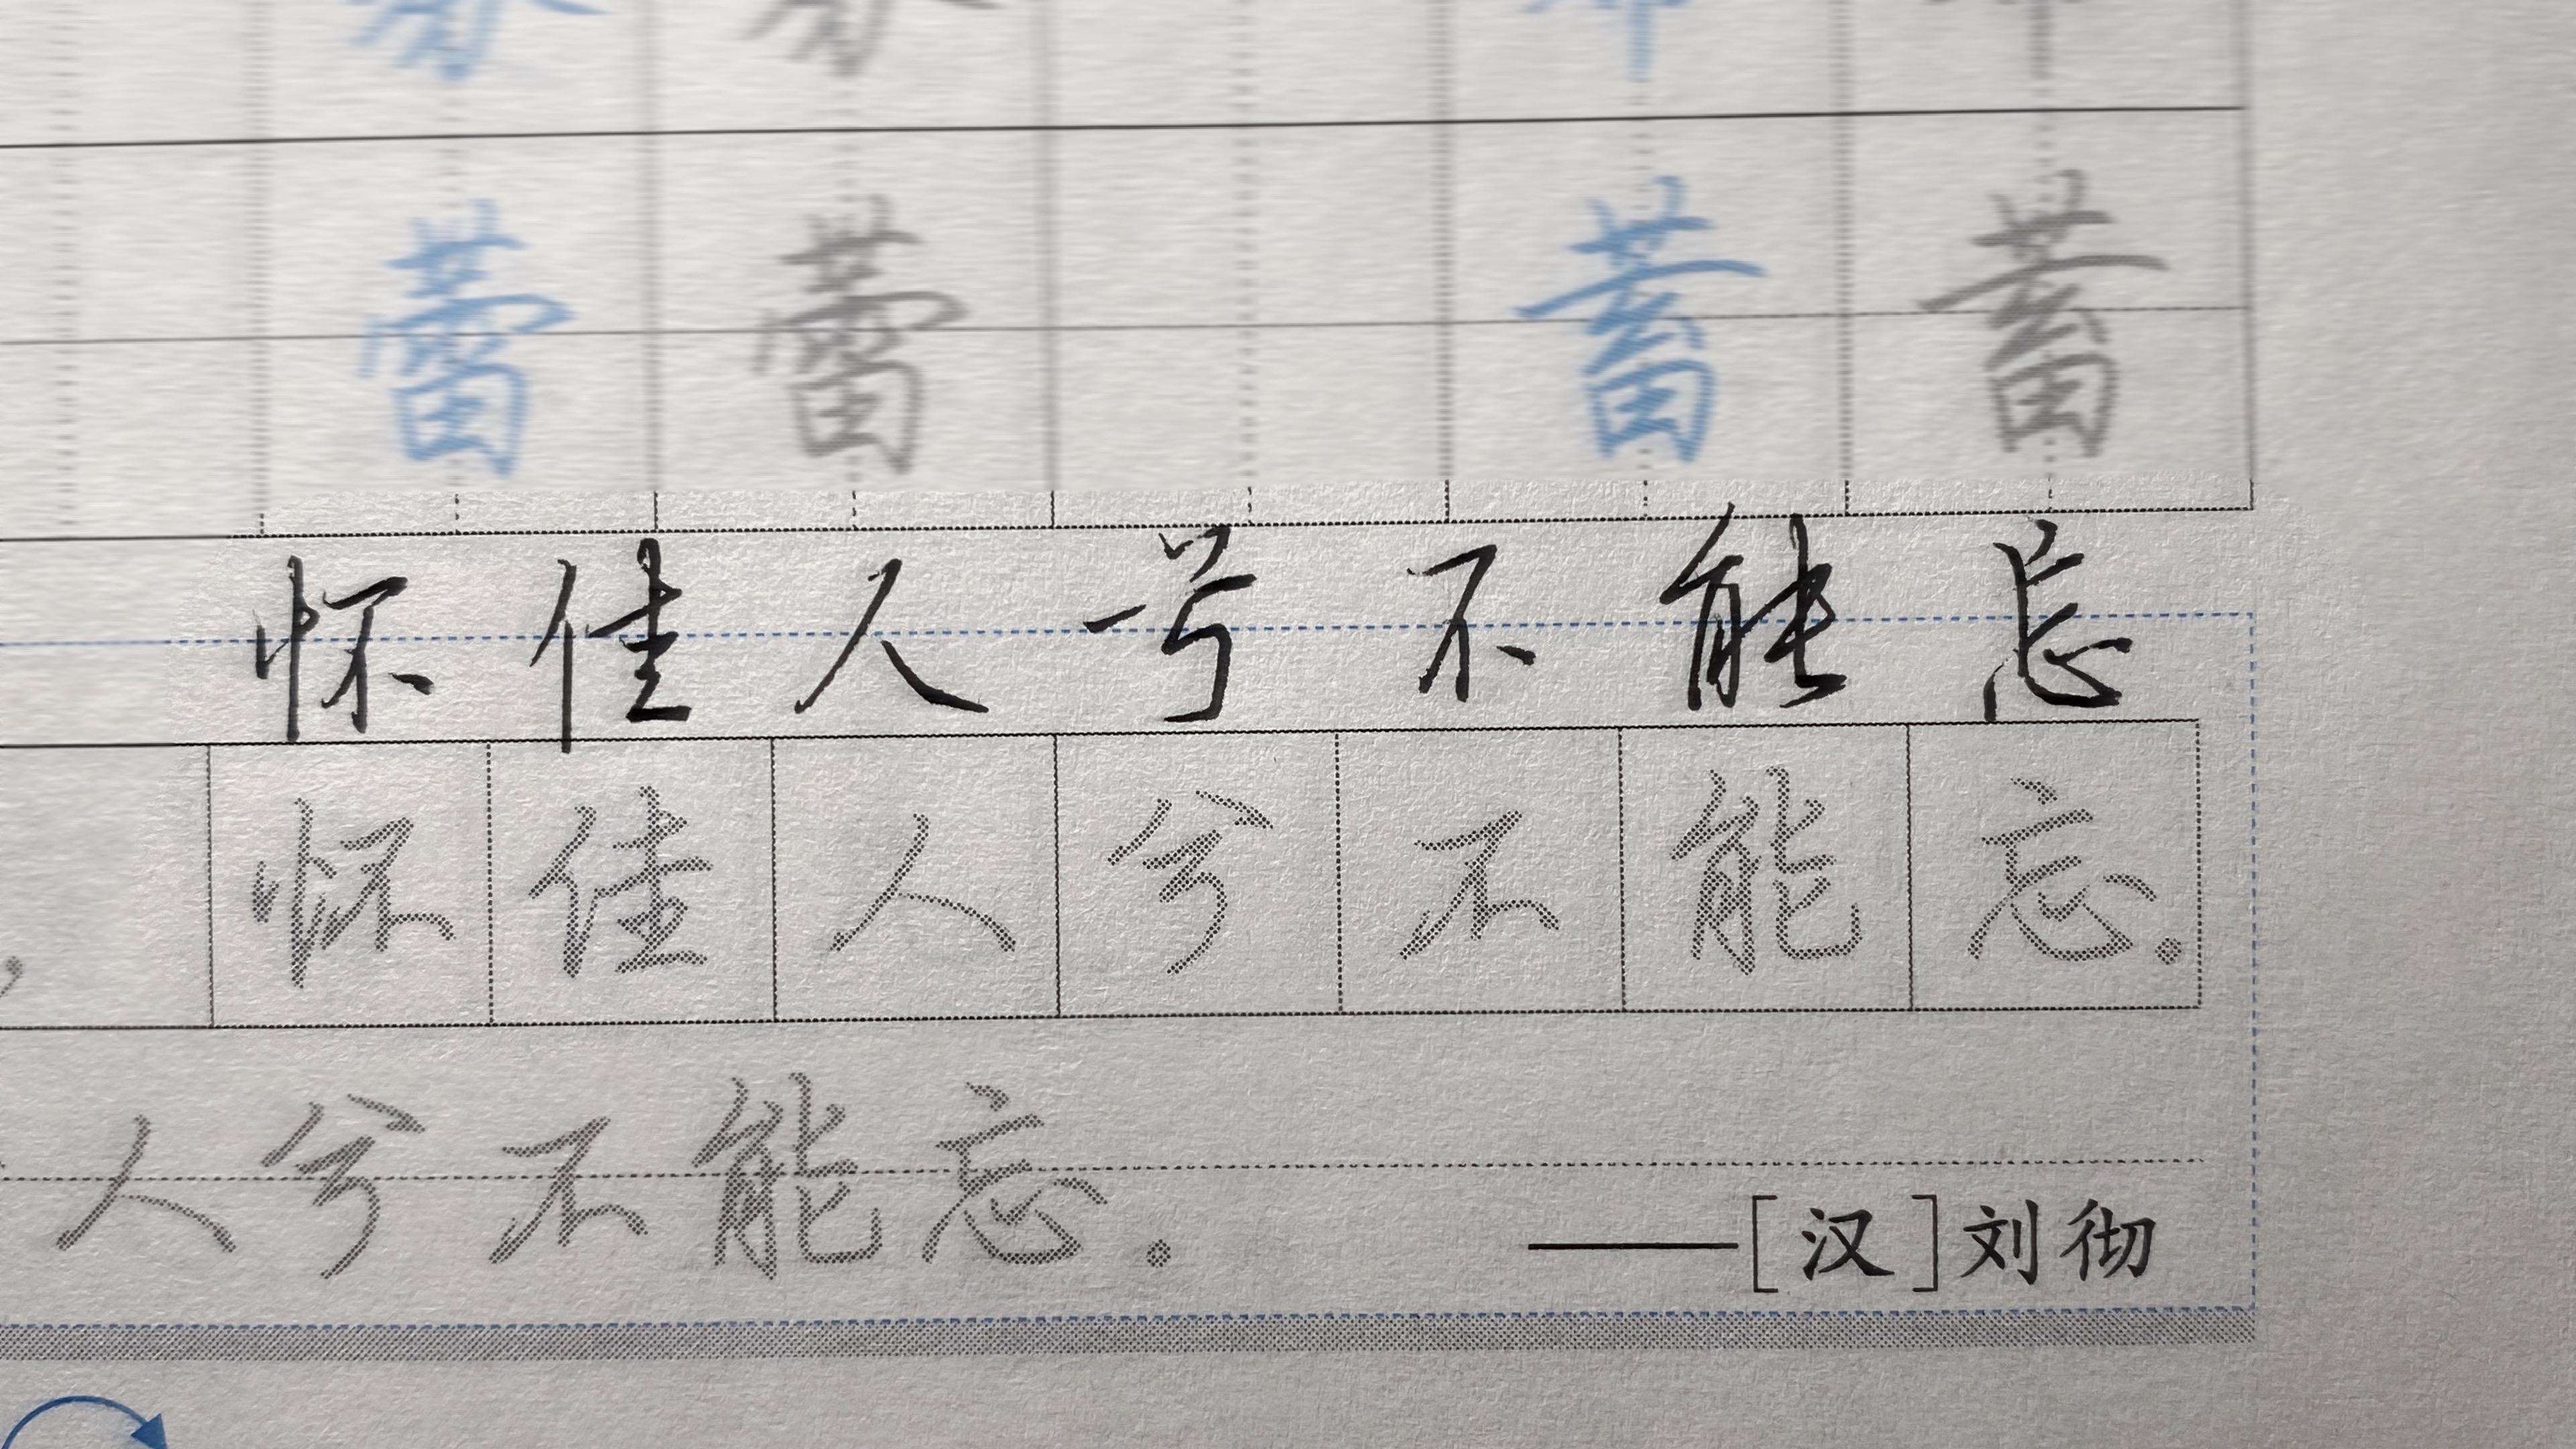 蕾 蕾 蓄 蓄
怀佳人兮不能忘
，怀佳人兮不能忘。
人兮不能忘。
——[汉]刘彻